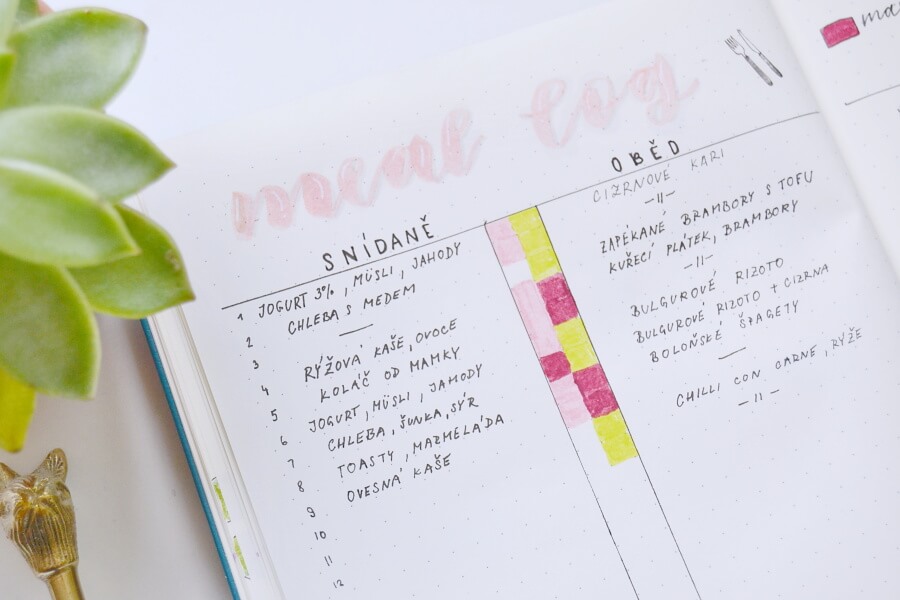 meal log
SNÍDANĚ
1 JOGURT 3%, MÜSLI, JAHODY
2 CHLEBA S MEDEM
3 —
4 RÝŽOVÁ KAŠE, OVOCE
5 KOLÁČ OD MAMKY
6 JOGURT, MÜSLI, JAHODY
7 CHLEBA, ŠUNKA, SÝR
8 TOASTY, MARMELÁDA
9 OVESNÁ KAŠE
10
11
12
OBĚD
CIZRNOVÉ KARI
—11—
ZAPÉKANÉ BRAMBORY S TOFU
KUŘECÍ PLÁTEK, BRAMBORY
—11—
BULGUROVÉ RIZOTO
BULGUROVÉ RIZOTO + CIZRNA
BOLOŇSKÉ ŠPAGETY
—
CHILLI CON CARNE, RÝŽE
—11—